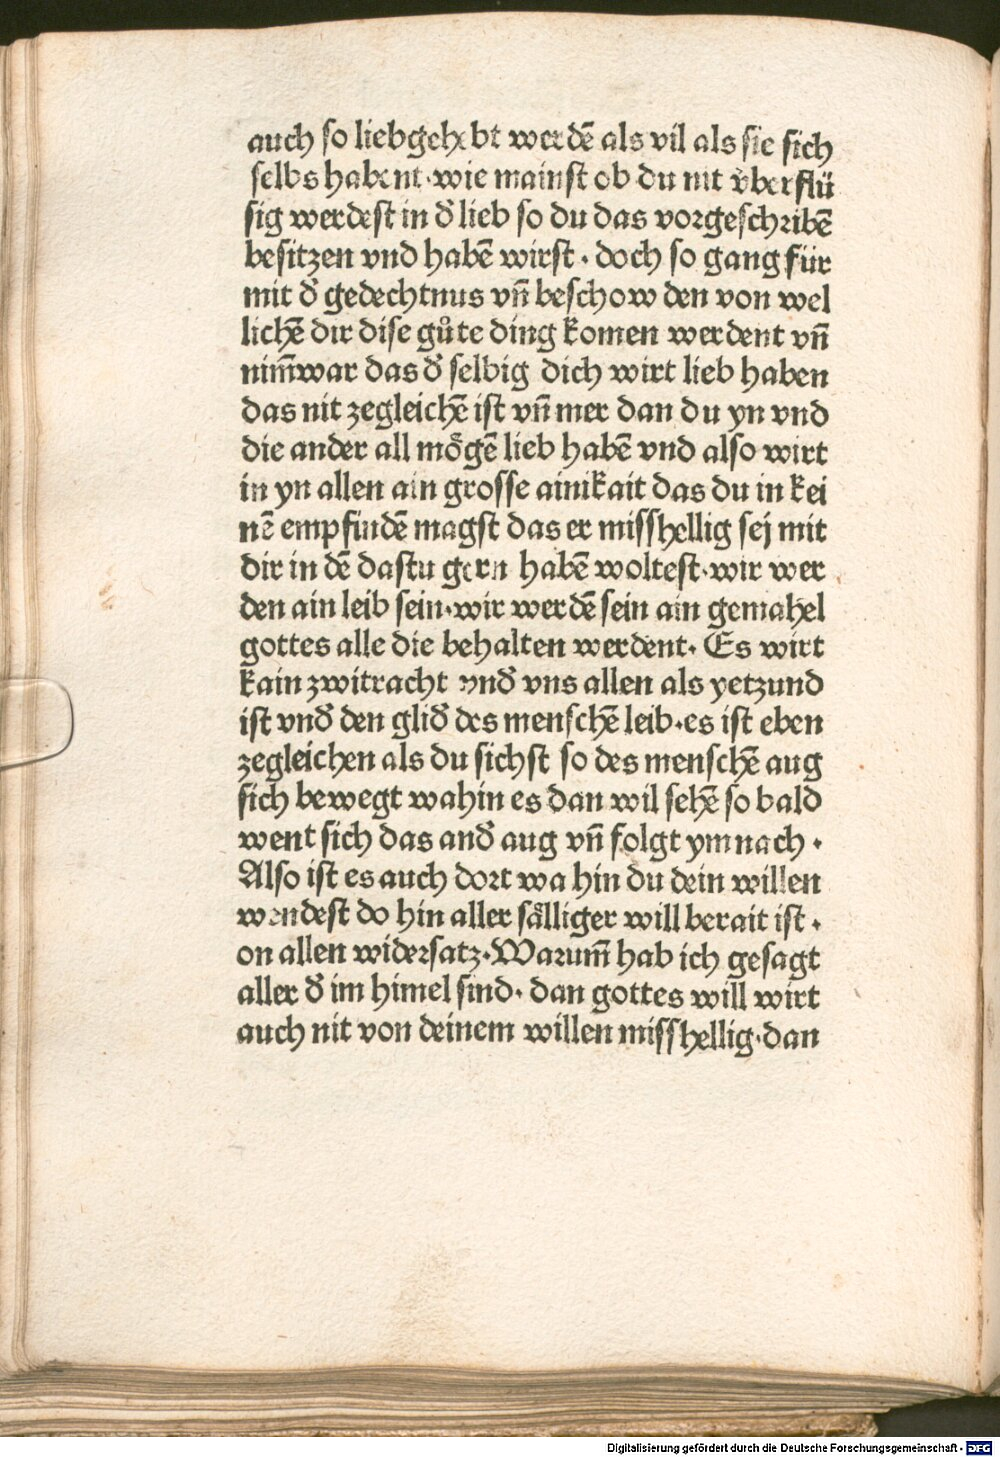 auch so liebgehebt werdē als vil als sie sich
selbs habent · wie mainst ob du nit v̈berflü
sig werdest in d̛ lieb so du das vorgeschribē
besitzen vnd habē wirst · doch so gang für
mit d̛ gedechtnus vn̄ beschow den von wel
lichē dir dise gůte ding komen werdent vn̄
nim̄war das d̛ selbig dich wirt lieb haben
das nit zegleichē ist vn̄ mer dan du yn vnd
die ander all mȯgē lieb habē vnd also wirt
in yn allen ain grosse ainikait das du in kei
nē empfindē magst das er misshellig sej mit
dir in dē dastu gern habē woltest · wir wer
den ain leib sein · wir werdē sein ain gemahel
gottes alle die behalten werdent · Es wirt
kain zwitracht vnd̛ vns allen als yetzund
ist vnd̛ den glid̛ des menschē leib · es ist eben
zegleichen als du sichst so des menschē aug
sich bewegt wahin es dan wil sehē so bald
went sich das and̛ aug vn̄ folgt ym nach ·
Also ist es auch dort wa hin du dein willen
wendest do hin aller sȧlliger will berait ist ·
on allen widersatz · Warum̄ hab ich gesagt
aller d̛ im himel sind · dan gottes will wirt
auch nit von deinem willen misshellig · dan
Digitalisierung gefördert durch die Deutsche Forschungsgemeinschaft - DFG